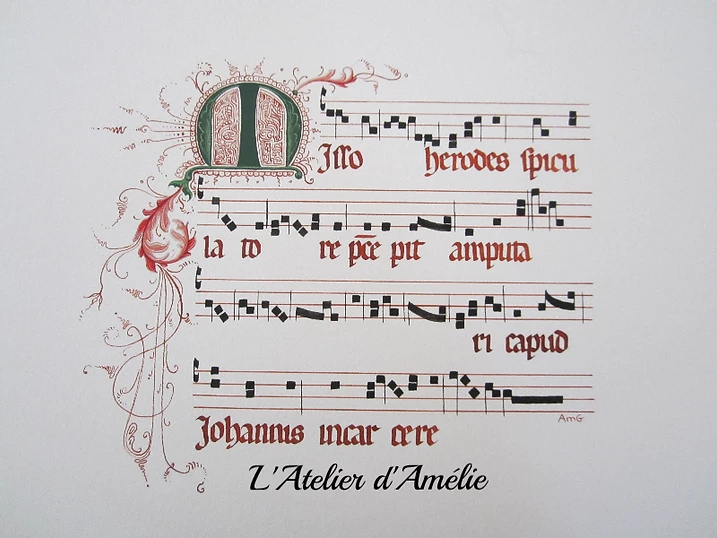 MIsso herodes spicu
la to re pc̄e pit amputa
ri capud
Johannis incar cere
AmG
L'Atelier d'Amélie